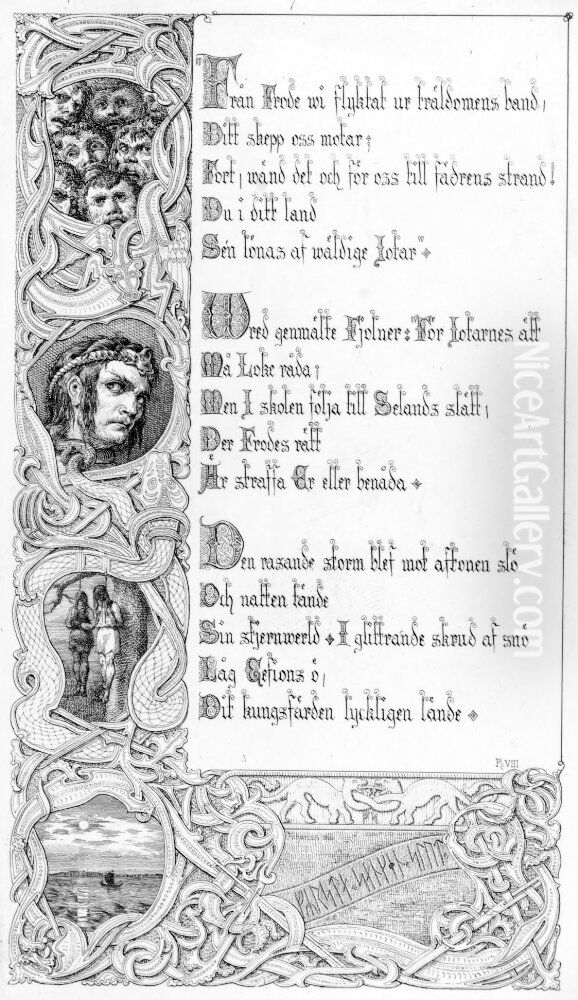 "Från Frode wi flyktat ur träldomens band,
Ditt skepp oss motar;
Fort, wänd det och för oss till fädrens strand!
Du i ditt land
Sen lönas af wäldige Jotar"
Wred genmälte Fjolner: "För Jotarnes ätt
Må Loke råda;
Men I skolen följa till Selands slätt,
Der Frodes rätt
Är straffa Er eller benåda
Den rasande storm blef mot aftonen slö
Och natten tände
Sin stjernwerld I glittrande skrud af snö
Låg Gefions ö,
Dit kungsfärden lyckligen lände
Pl. VIII
NiceArtGallery.com